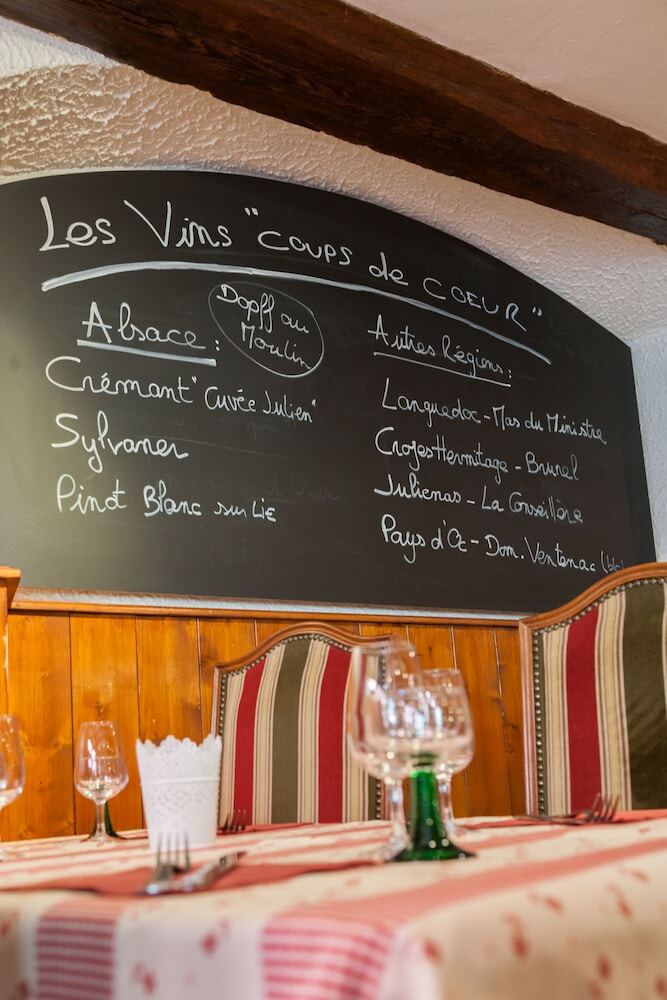 Les Vins "coups de COEUR"
Alsace :
Dopff au
Moulin
Crémant "Cuvée Julien"
Sylvaner
Pinot Blanc sur LiE
Autres Régions :
Languedoc - Mas du Ministre
CrozesHermitage - Brunel
Julienas - La Conseillère
Pays d'Oc - Dom. Ventenac (blc)